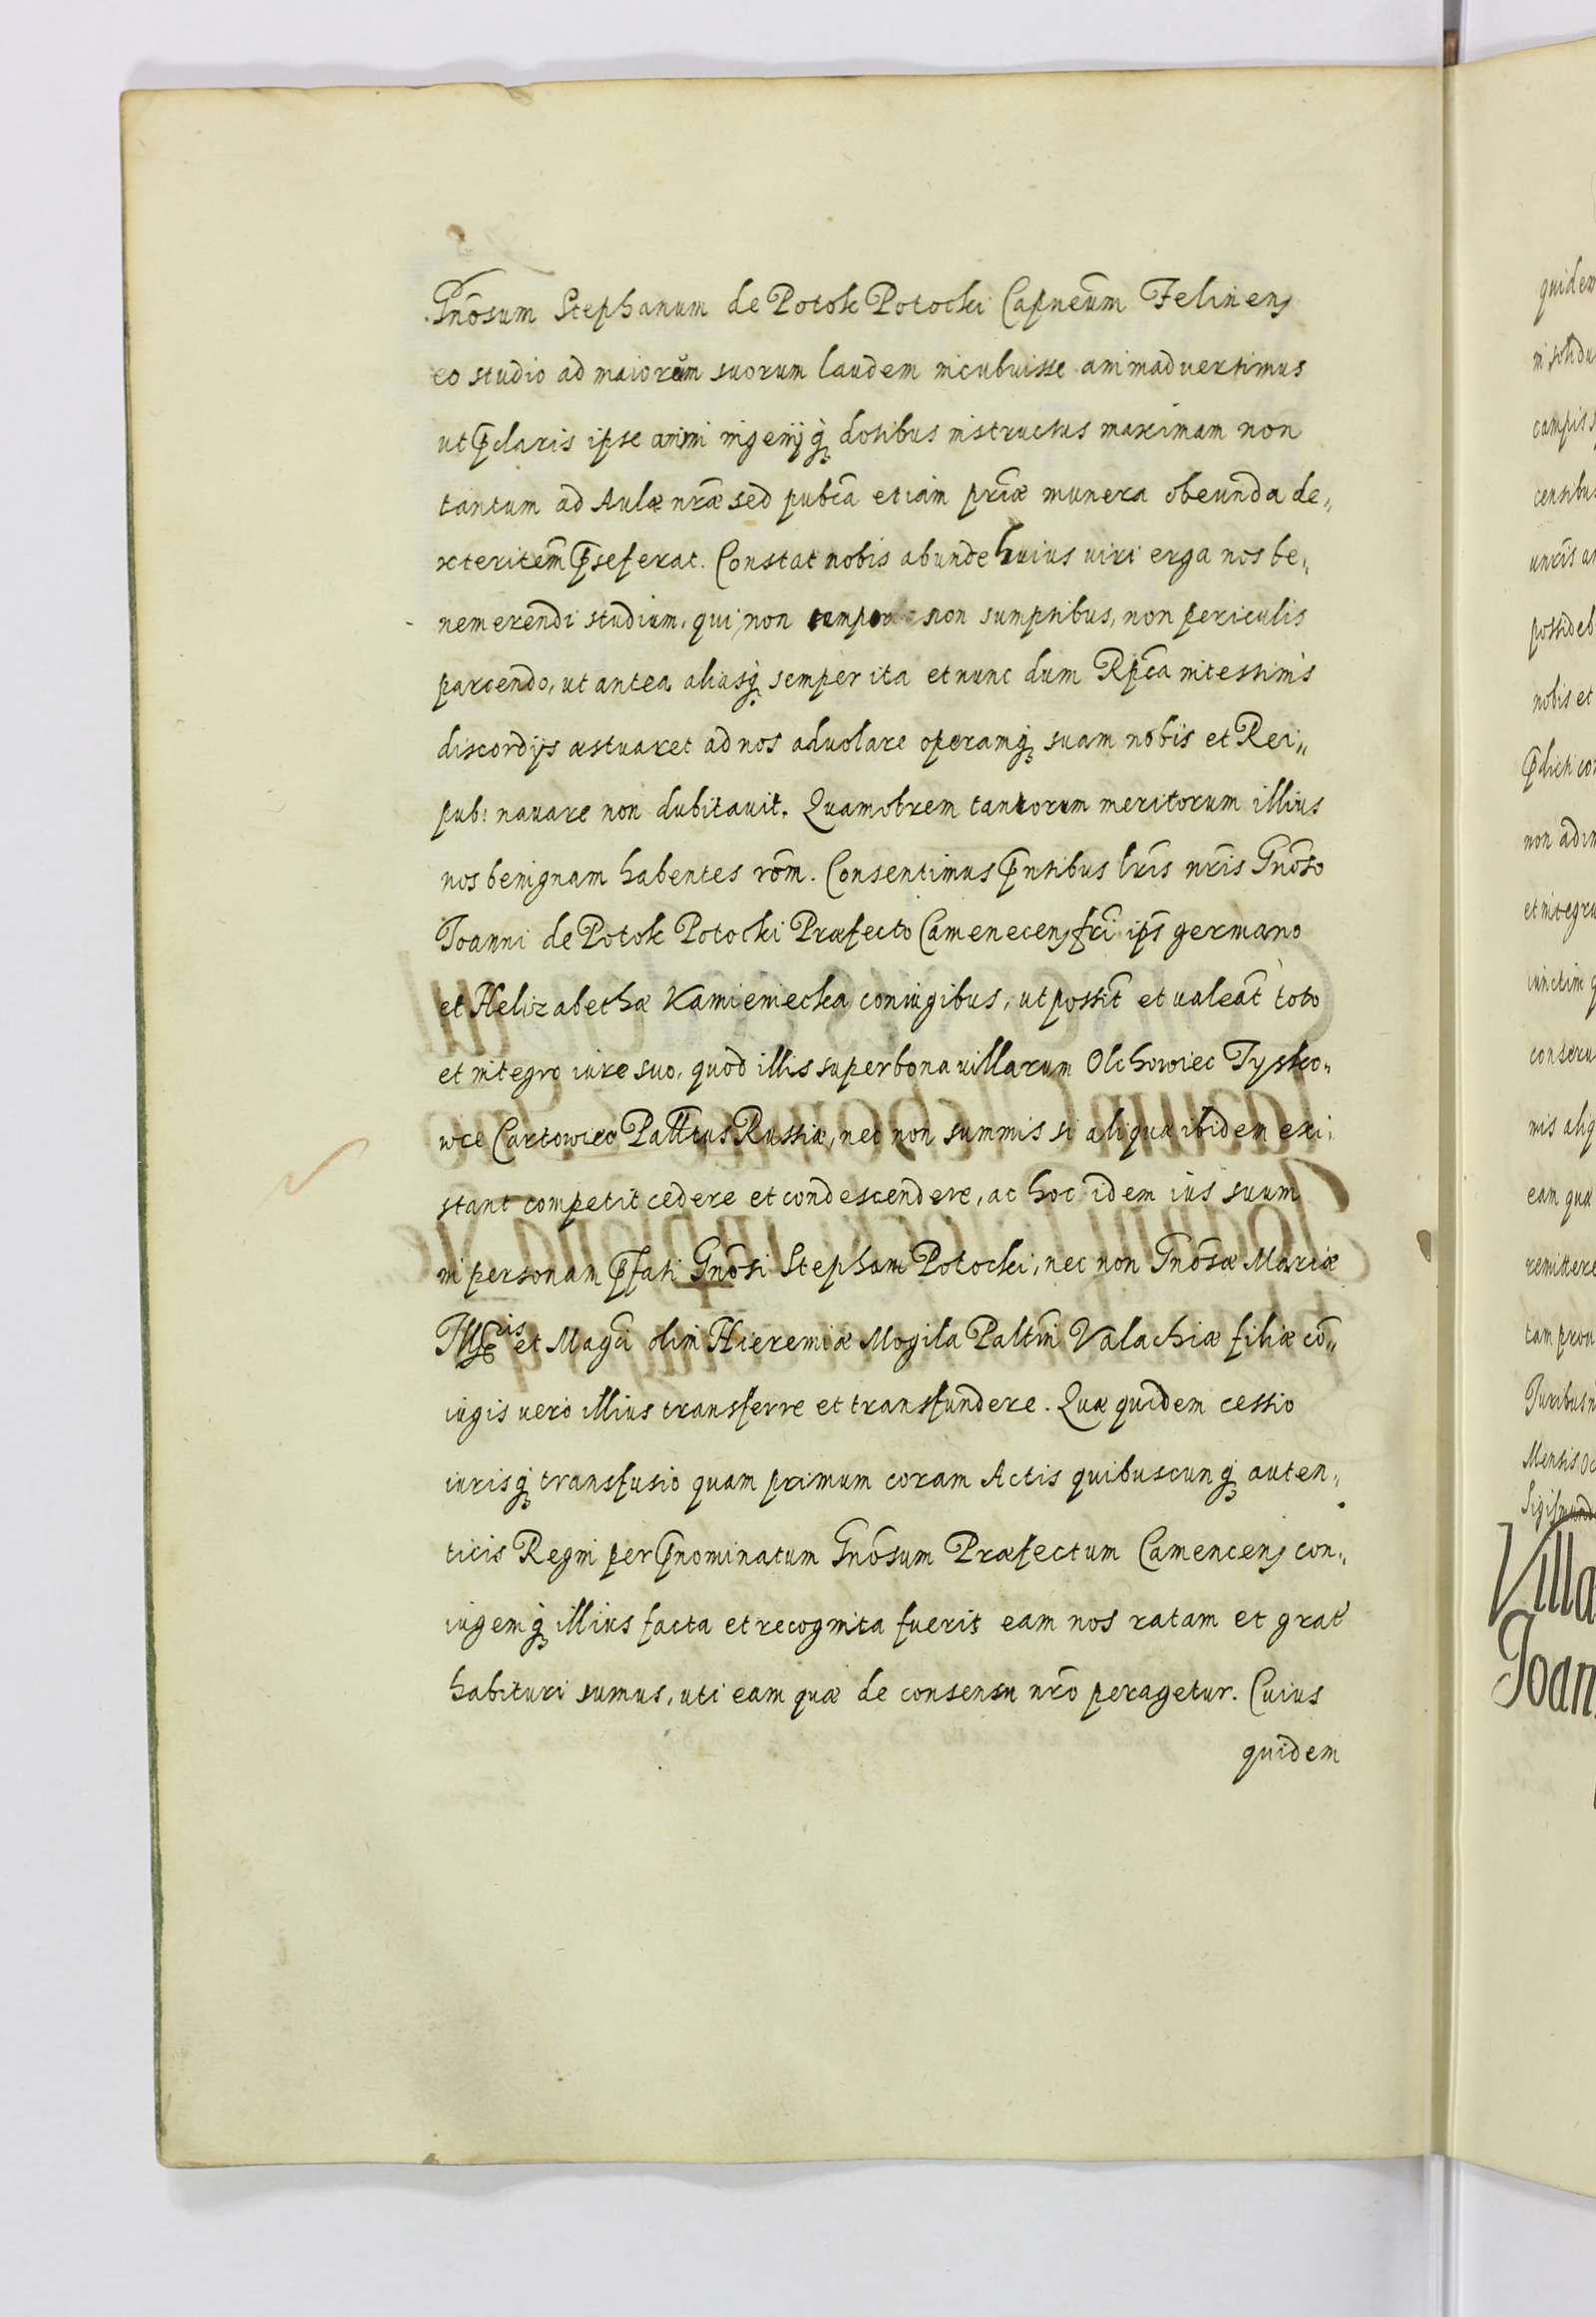 Gnõsum Stephanum de Potok Potocki Capneũm Felinens
eo studio ad maiorum suorum laudem incubuisse animaduertimus
ut p̃claris ipse animi ingenijq́ꝫ dotibus instructus maximam non
tantum ad Aulæ nr̃æ sed pubc̃a etiam pr̃iæ munera obeunda de„
xteritem̃ p̃seferat. Constat nobis abunde huius uiri erga nos be„
nemerendi studium, qui non non sumptibus, non periculis
parcendo, ut antea aliasq́ꝫ semper ita et nunc dum Rpc̃a intestinis
discordijs æstuaret ad nos aduolare operamq́ꝫ suam nobis et Rei„
pub: nauare non dubitauit. Quamobrem tantorum meritorum illius
nos benignam habentes rõm. Consentimus p̃ntibus lr̃is nr̃is Gnõso
Joanni de Potok Potocki Præfecto Camenecens fr̃i ips̃ germano
et Helizabethæ Kamieniecka coniugibus, ut possit̃ et ualeat̃ toto
et integro iure suo, quod illis super bona uillarum Olchowiec Tysko„
wce Cartowiec Palt̃tus Russiæ, nec non summis si aliqua ibidem exi„
stant competit cedere et condescendere, ac hoc idem ius suum
in personam p̃fati Gnõsi Stephani Potocki, nec non Gnõsæ Mariæ
et Magc̃i olim Hieremiæ Mogila Palt̃ini Valachiæ filiæ cõ„
iugis uero illius transferre et transfundere. Quæ quidem cessio
iurisq́ꝫ transfusio quam primum coram Actis quibuscunq́ꝫ auten„
ticis Regni per p̃nominatum Gnõsum Præfectum Camencens con„
iugemq́ꝫ illius facta et recognita fuerit eam nos ratam et grat̃
habituri sumus, uti eam quæ de consensu nr̃o peragetur. Cuius
quidem
quidem
possideb
nobis et
non adim
eam quæ
remittere
Villa
Joan